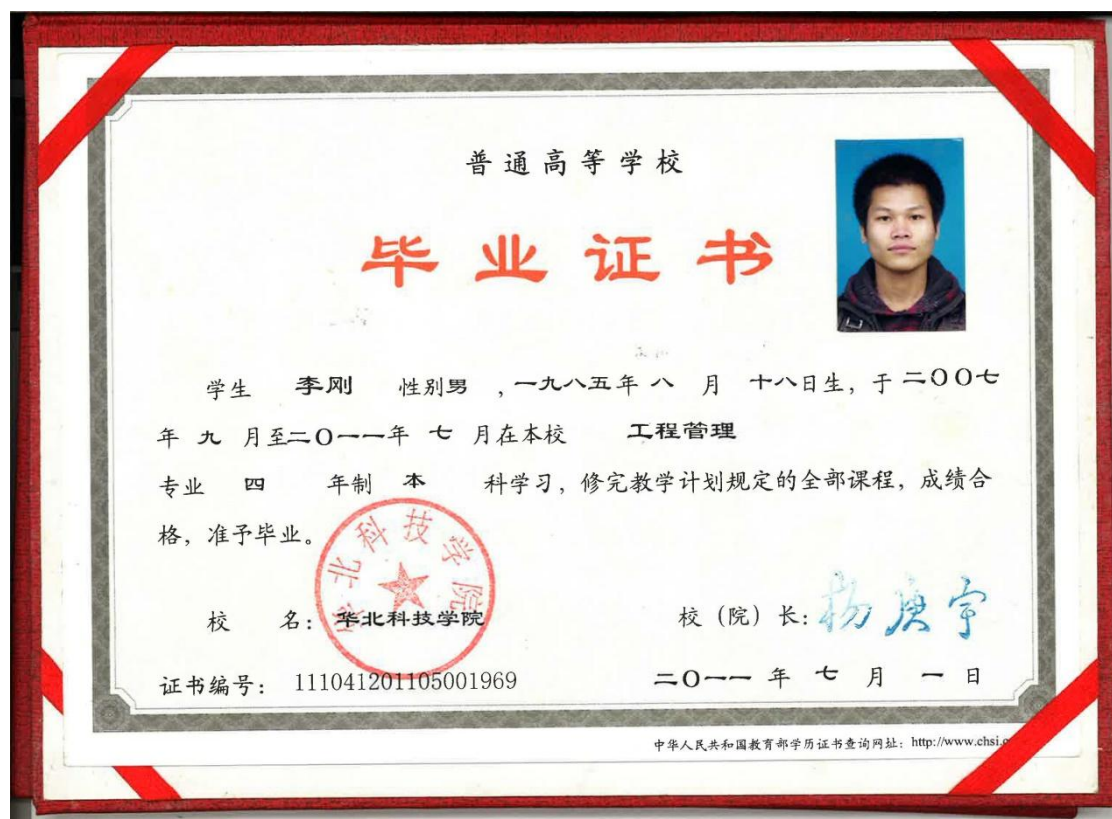 普通高等学校
毕业证书
学生 李刚 性别男 ，一九八五年 八 月 十八日生，于二〇〇七
年 九 月至二〇一一年 七 月在本校 工程管理
专业 四 年制 本 科学习，修完教学计划规定的全部课程，成绩合
格，准予毕业。
华北科技学院
校 名：华北科技学院 校（院）长：杨庚宇
证书编号： 111041201105001969 二〇一一 年 七 月 一 日
中华人民共和国教育部学历证书查询网址：http://www.chsi.c